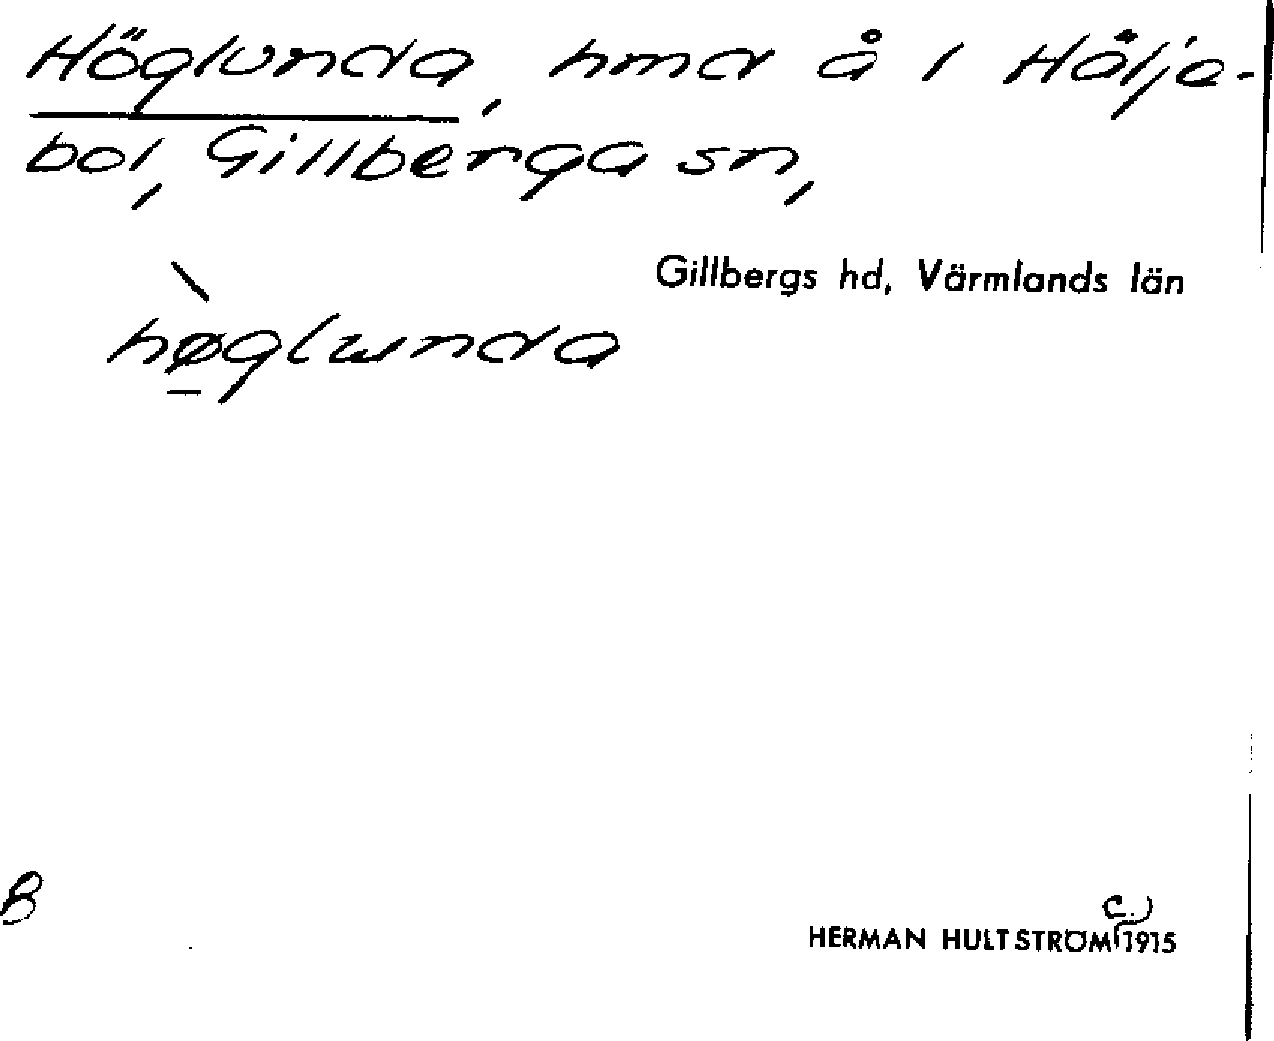 Höglunda, hmd å 1 Hålje-
bol, Gillberga sn,
Gillbergs hd, Värmlands län
hø̱̀glunda
B
HERMAN HULTSTRÖM c. 1915